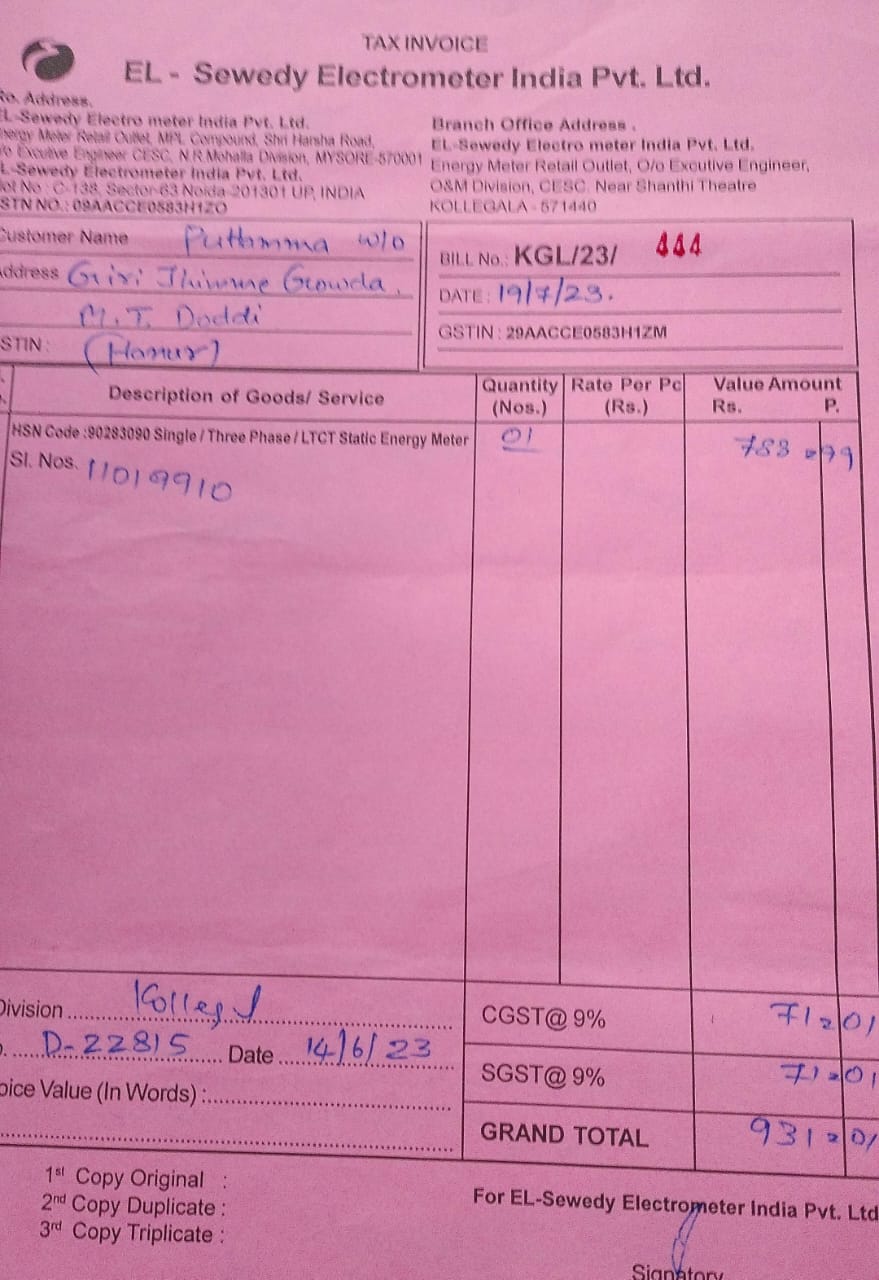 TAX INVOICE
EL - Sewedy Electrometer India Pvt. Ltd.
Ro. Address.
EL-Sewedy Electro meter India Pvt. Ltd.
Energy Meter Retail Outlet, MPL Compound, Shri Harsha Road,
O/o Excutive Engineer CESC, N.R.Mohalla Division, MYSORE-570001
EL-Sewedy Electrometer India Pvt. Ltd.
Plot No : C-138, Sector-63 Noida-201301 UP, INDIA
GSTN NO.: 09ACCE0583H1ZO
Branch Office Address .
EL-Sewedy Electro meter India Pvt. Ltd.
Energy Meter Retail Outlet, O/o Excutive Engineer,
O&M Division, CESC. Near Shanthi Theatre
KOLLEGALA - 571440
Customer Name Puttamma w/o
Address Giri Thimme Gowda.
M.T. Doddi
GSTIN : (Hanur)
BILL No.: KGL/23/ 444
DATE : 19/7/23.
GSTIN : 29AACCE0583H1ZM
Description of Goods/ Service
Quantity (Nos.)
Rate Per Pc (Rs.)
Value Amount
Rs. P.
HSN Code :90283090 Single / Three Phase / LTCT Static Energy Meter 01 788=99
Sl. Nos. 11019910
Division Kollegal
D-22815 Date 14/6/23
Invoice Value (In Words) :
CGST@ 9% 71=01
SGST@ 9% 71=01
GRAND TOTAL 931=01
1st Copy Original :
2nd Copy Duplicate :
3rd Copy Triplicate :
For EL-Sewedy Electrometer India Pvt. Ltd
Signatory